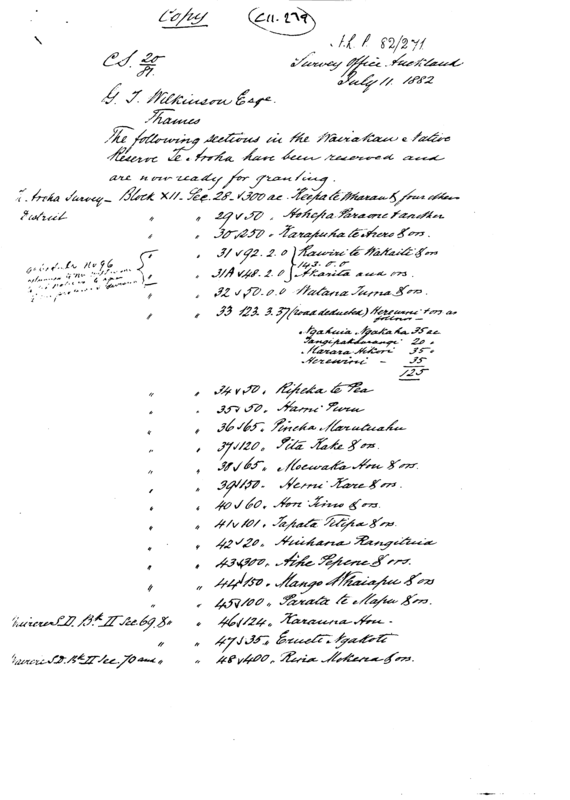 Copy
C11.279
A.L.P. 82/271
C.S. 20/81.
Survey Office Auckland
July 11. 1882
G. T. Wilkinson Esqe.
Thames
The following sections in the Wairakau Native
Reserve Te Aroha have been reserved and
are now ready for granting.
Te Aroha Survey - Block XII. Sec. 28 - 300 ac. Keepa te Wharau & four others
District " " 29 v 50 . Hohepa Paraone & another
" " 30 v 250 . Karapuha te Arero & ors.
" " 31 v 92.2.0 Rawiri te Wakaiti & ors
142.0.0
" " 31A v 48.2.0 Akarita and ors.
" " 32 v 50.0.0 Watana Tuma & ors.
" " 33 123.3.37 (road deducted) Herewini & ors as
follows -
Ngahuia Ngakaha 35 ac
20 "
Marara Hikori 35 "
Herewini - 35
125
" " 34 v 50 . Ripeka te Pea
" " 35 v 50 . Hami Puru
" " 36 v 65 . Pineha Marutuahu
" " 37 v 120 . Pita Kake & ors.
" " 38 v 65 . Moewaka Hou & ors.
" " 39 v 150 . Hemi Kare & ors.
" " 40 v 60 . Hori Timo & ors.
" " 41 v 101 . Tapata Titipa & ors.
" " 42 v 20 . Hiuhana Rangituia
" " 43 v 300 . Aihe Pepene & ors.
" " 44 v 150 . Mango Whaiapu & ors
" " 45 v 100 . Parata te Mapu & ors.
S.D. Bk II Sec. 69 & " " 46 v 124 . Karauna Hou -
" " 47 v 35 " Erueti Ngakoti
S.D. Bk II Sec. 70 and " " 48 v 400 . Rina Mokena & ors.